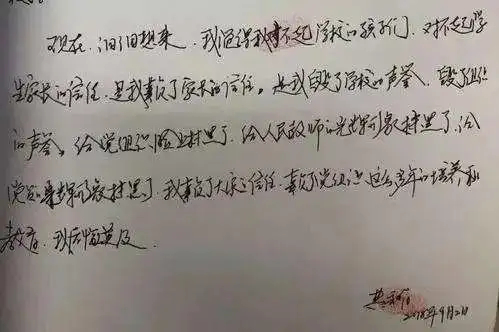 现在,泪泪想来,我觉得我对不起学校的孩子们,对不起学
生家长的信任,是我辜负了家长的信任。是我毁了学校的声誉,毁了组织
的声誉。给党组织脸上抹黑了,给人民教师的光辉形象抹黑了,给
党员的形象抹黑了,我辜负了大家的信任,辜负了党组织这么多年的培养和
教育,我后悔莫及。
2018年9月2日